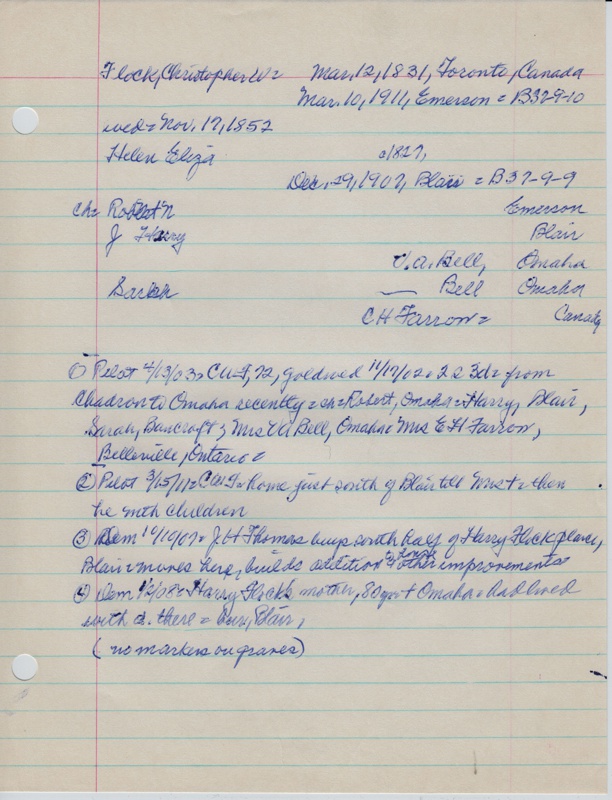 Flock, Christopher W = Mar. 12, 1831, Toronto, Canada
Mar. 10, 1911, Emerson = B37-9-10
wed = Nov. 17, 1852
Helen Eliza c1827,
Dec. 29, 1907, Blair = B37-9-9
ch = Robert N Emerson
J Harry Blair
V.A. Bell, Omaha
Sarah — Bell Omaha
CH Farrow = Canada
① Pilot 4/13/03 = CWF, 72, gold wed 11/17/02 = 2s 3d = from
Chadron to Omaha recently = ch = Robert, Omaha = Harry, Blair,
Sarah, Bancroft & Mrs VA Bell, Omaha = Mrs EH Farrow,
Belleville, Ontario =
② Pilot 3/15/11 = CWF = home just south of Blair till Mrs + = then
he with children
③ Dem 10/19/07 = J H Thomas buys south half of Harry Flock place,
Blair = moves here, builds addition to house & other improvements
④ Dem 1/2/08 = Harry Flock's mother, 80 yrs + Omaha = had lived
with d. there = bur, Blair,
(no markers on graves)